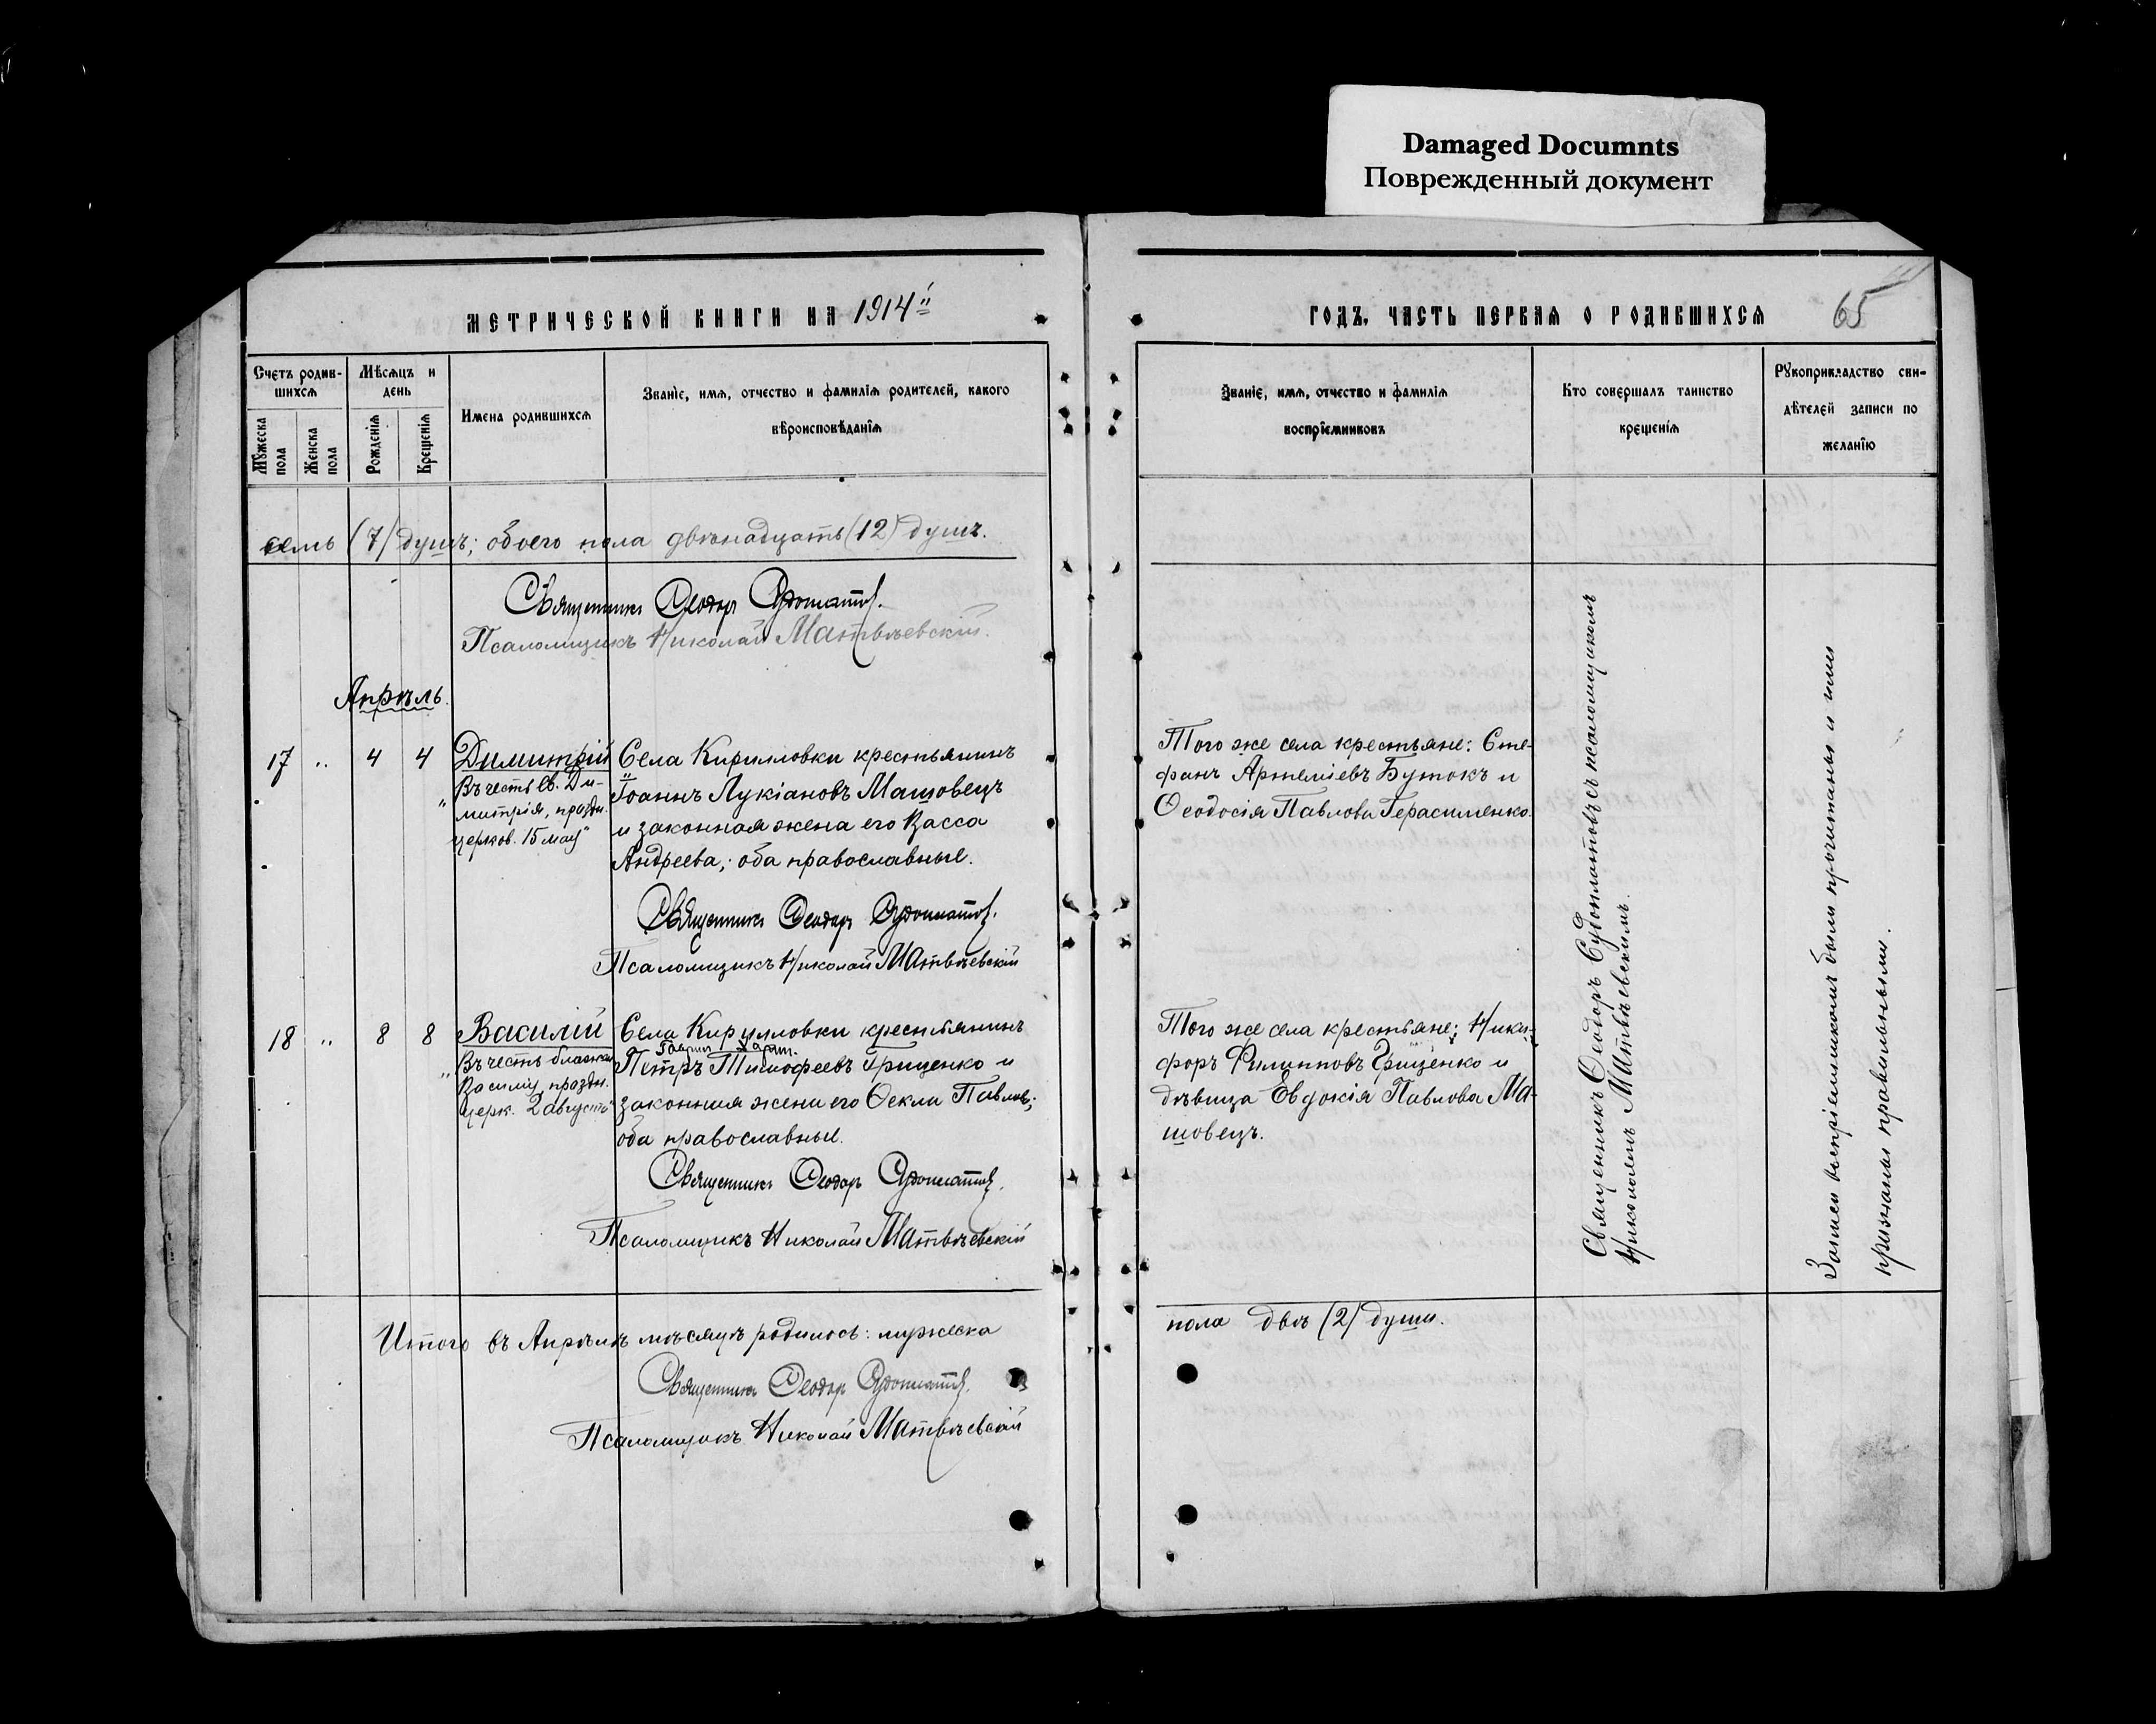 Damaged Documnts
Поврежденный документ
МЕТРИЧЕСКОЙ КНИГИ НА 1914й
ГОДЪ, ЧАСТЬ ПЕРВАЯ О РОДИВШИХСЯ
65
Счетъ родив-
шихся
Мужеска
пола
Женска
пола
Мѣсяцъ и
день
Рожденія
Крещенія
Имена родившихся
Званіе, имя, отчество и фамилія родителей, какого
вѣроисповѣданія
Званіе, имя, отчество и фамилія
воспріемниковъ
Кто совершалъ таинство
крещенія
Рукоприкладство сви-
дѣтелей записи по
желанію
семь (7) душъ; обоего пола двѣнадцать (12) душъ.
Священникъ Ѳеодоръ Судоплатовъ.
Псаломщикъ Николай Матвѣевскій.
Апрѣль.
17 " 4 4
Димитрій
"Въ честь Св. Ди-
митрія, праздн.
церков. 15 мая"
Села Кирилловки крестьянинъ
Іоаннъ Лукіановъ Машовецъ
и законная жена его Васса
Андреева; оба православные.
Священникъ Ѳеодоръ Судоплатовъ.
Псаломщикъ Николай Матвѣевскій
Того же села крестьяне: Сте-
фанъ Артеміевъ Бутокъ и
Ѳеодосія Павлова Герасименко.
18 " 8 8
Василій
"Въ честь блажен.
Василія, праздн.
церк. 2 августа"
Села Кирилловки крестьянинъ
Петръ Тимофеевъ Гриценко и
законная жена его Ѳекла Павлова;
оба православные.
Священникъ Ѳеодоръ Судоплатовъ.
Псаломщикъ Николай Матвѣевскій
Того же села крестьяне: Ники-
форъ Филипповъ Гриценко и
дѣвица Евдокія Павлова Ма-
шовецъ.
Священникъ Ѳеодоръ Судоплатовъ съ псаломщикомъ
Николаемъ Матвѣевскимъ.
Записи воспріемникомъ были прочитаны и ими
признаны правильными.
Итого въ Апрѣлѣ мѣсяцѣ родилось: мужеска
пола двѣ (2) души.
Священникъ Ѳеодоръ Судоплатовъ.
Псаломщикъ Николай Матвѣевскій